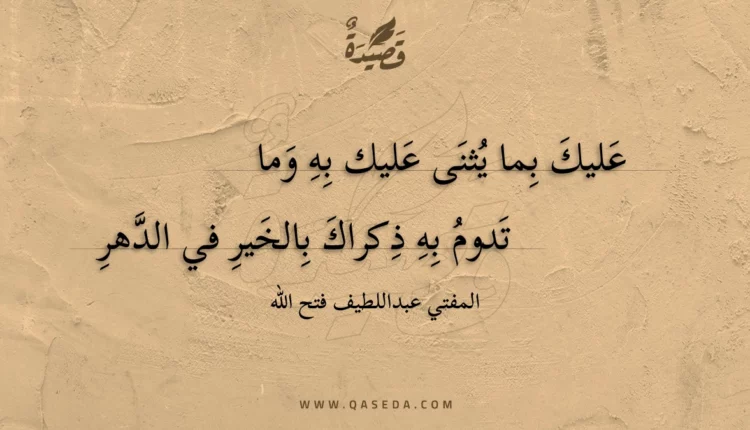 قَصِيدَةٌ
عَليكَ بِما يُثنَى عَليك بِهِ وَما
تَدومُ بِهِ ذِكراكَ بِالخَيرِ في الدَّهرِ
المفتي عبداللطيف فتح الله
WWW.QASEDA.COM